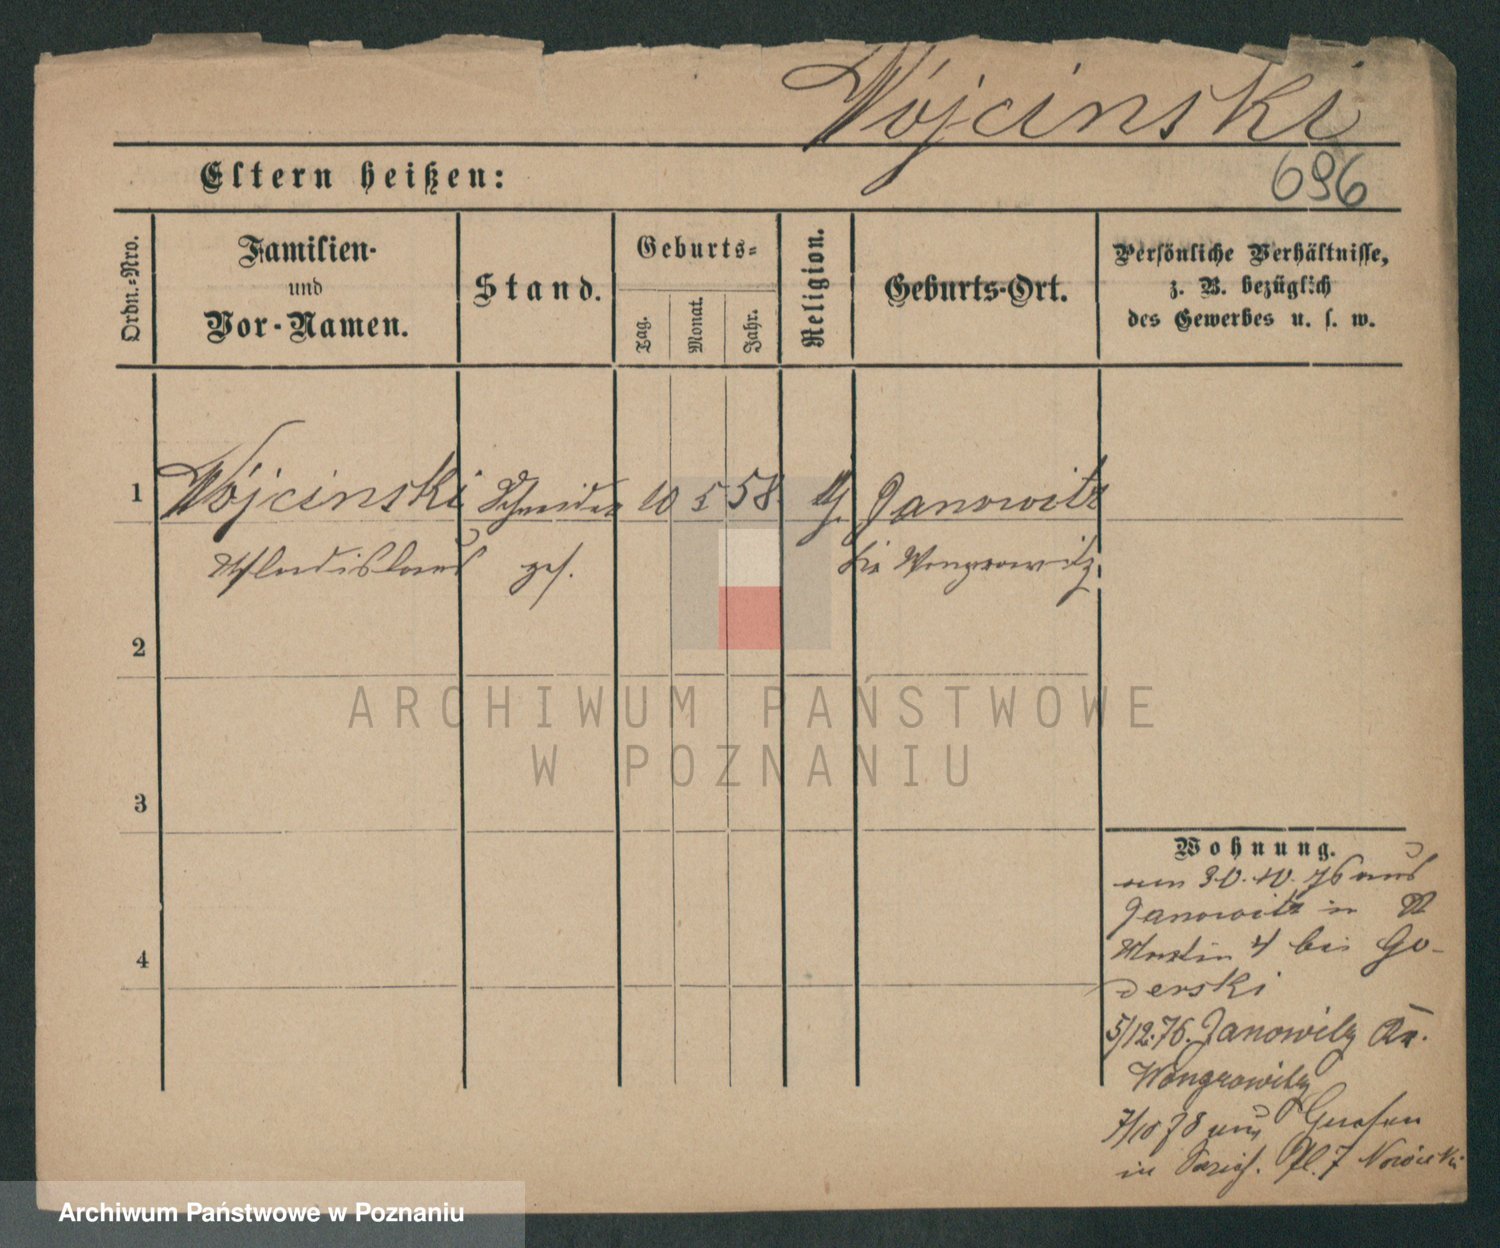 Wójcinski
696
Eltern heißen:
Ordn.-Nro.
Familien-
und
Vor-Namen.
Stand.
Geburts-
Tag.
Monat.
Jahr.
Religion.
Geburts-Ort.
Persönliche Verhältnisse,
z. B. bezüglich
des Gewerbes u. s. w.
1
Wójcinski Schneider 10 5 58. Janowitz
Wladislaus ges. Wongrowitz.
2
3
4
Wohnung.
am 30.10.76 aus
Janowitz in
Martin 4 bei Go-
derski
5/12.76. Janowitz Kr.
Wongrowitz
7/10 78 aus Gnesen
in 7 Nowicki
ARCHIWUM PAŃSTWOWE
W POZNANIU
Archiwum Państwowe w Poznaniu